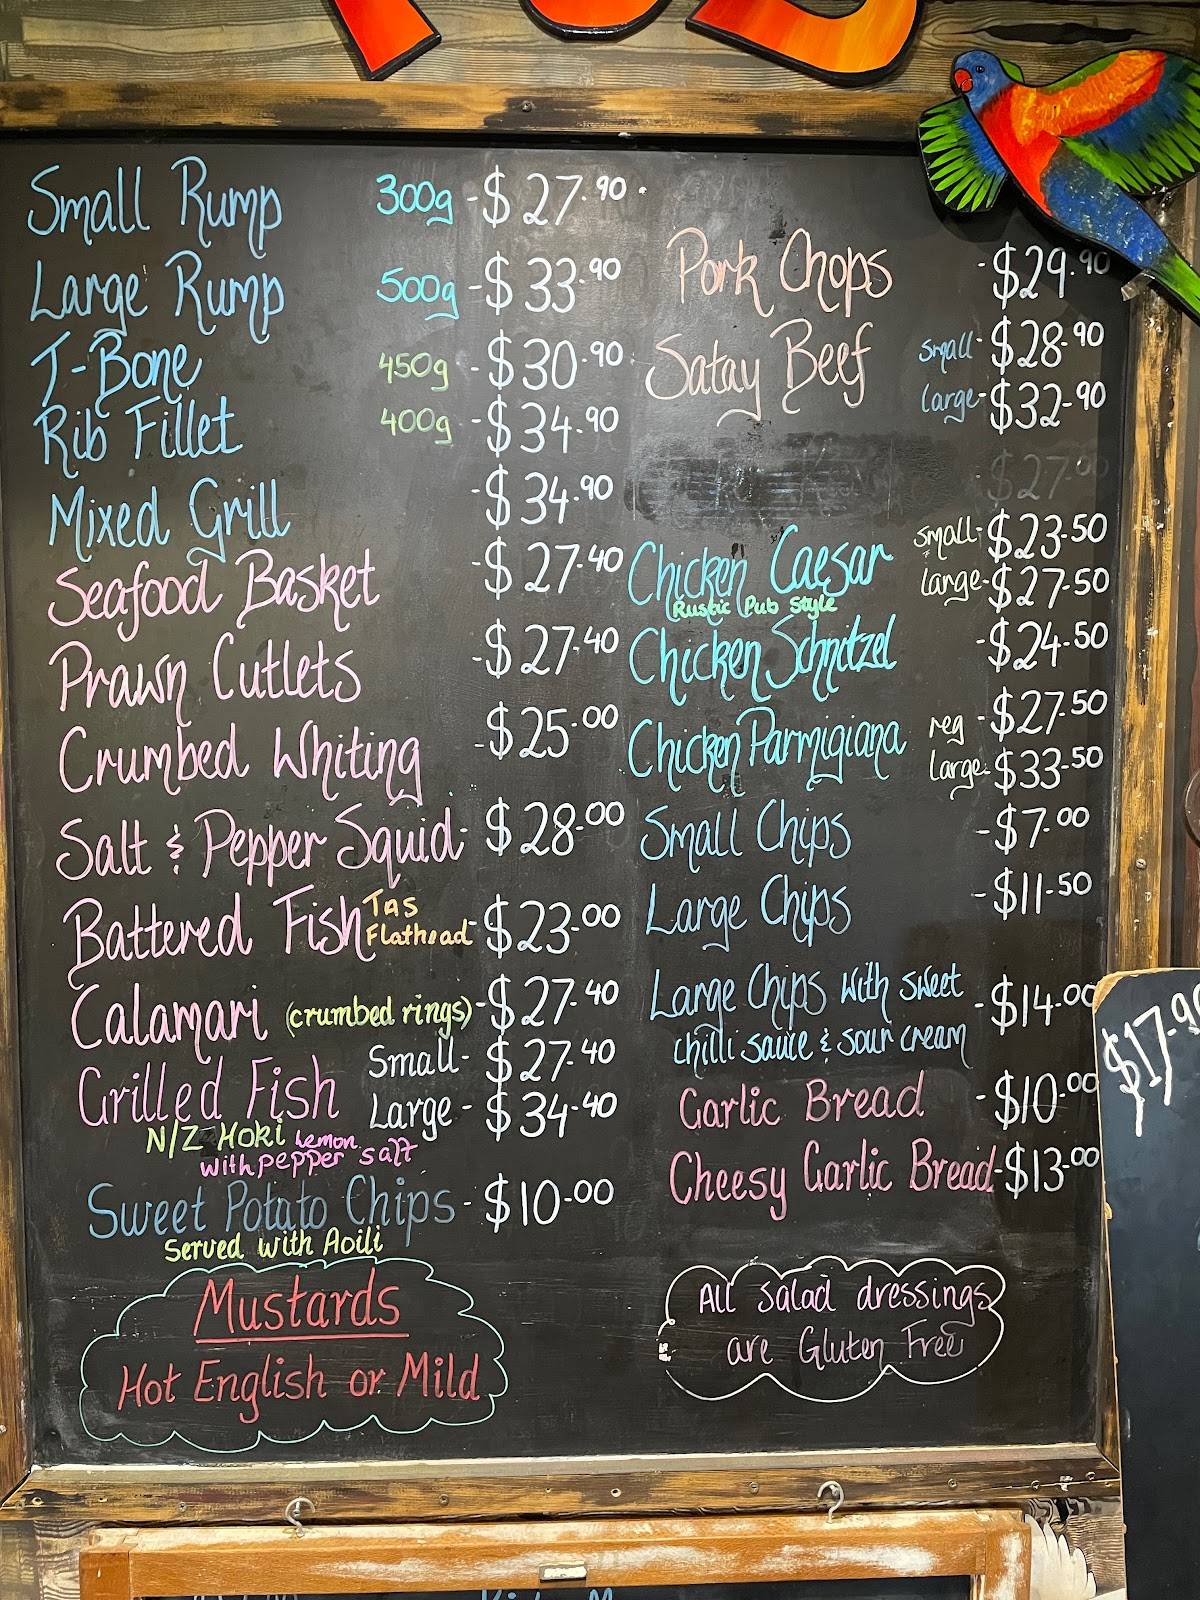 Small Rump 300g - $27.90
Large Rump 500g - $33.90
T-Bone 450g - $30.90
Rib Fillet 400g - $34.90
Mixed Grill - $34.90
Seafood Basket - $27.40
Prawn Cutlets - $27.40
Crumbed Whiting - $25.00
Salt & Pepper Squid - $28.00
Battered Fish TAS Flathead - $23.00
Calamari (crumbed rings) - $27.40
Grilled Fish Small - $27.40
Large - $34.40
N/Z HOKI Lemon
with pepper salt
Sweet Potato Chips - $10.00
Served with Aoili
Mustards
Hot English or Mild
Pork Chops - $29.90
Satay Beef small - $28.90
large - $32.90
$27.00
Chicken Caesar small - $23.50
Rustic Pub Style large - $27.50
Chicken Schnitzel - $24.50
Chicken Parmigiana reg - $27.50
large - $33.50
Small Chips - $7.00
Large Chips - $11.50
Large Chips with sweet - $14.00
chilli sauce & sour cream
Garlic Bread - $10.00
Cheesy Garlic Bread - $13.00
All salad dressings
are Gluten Free